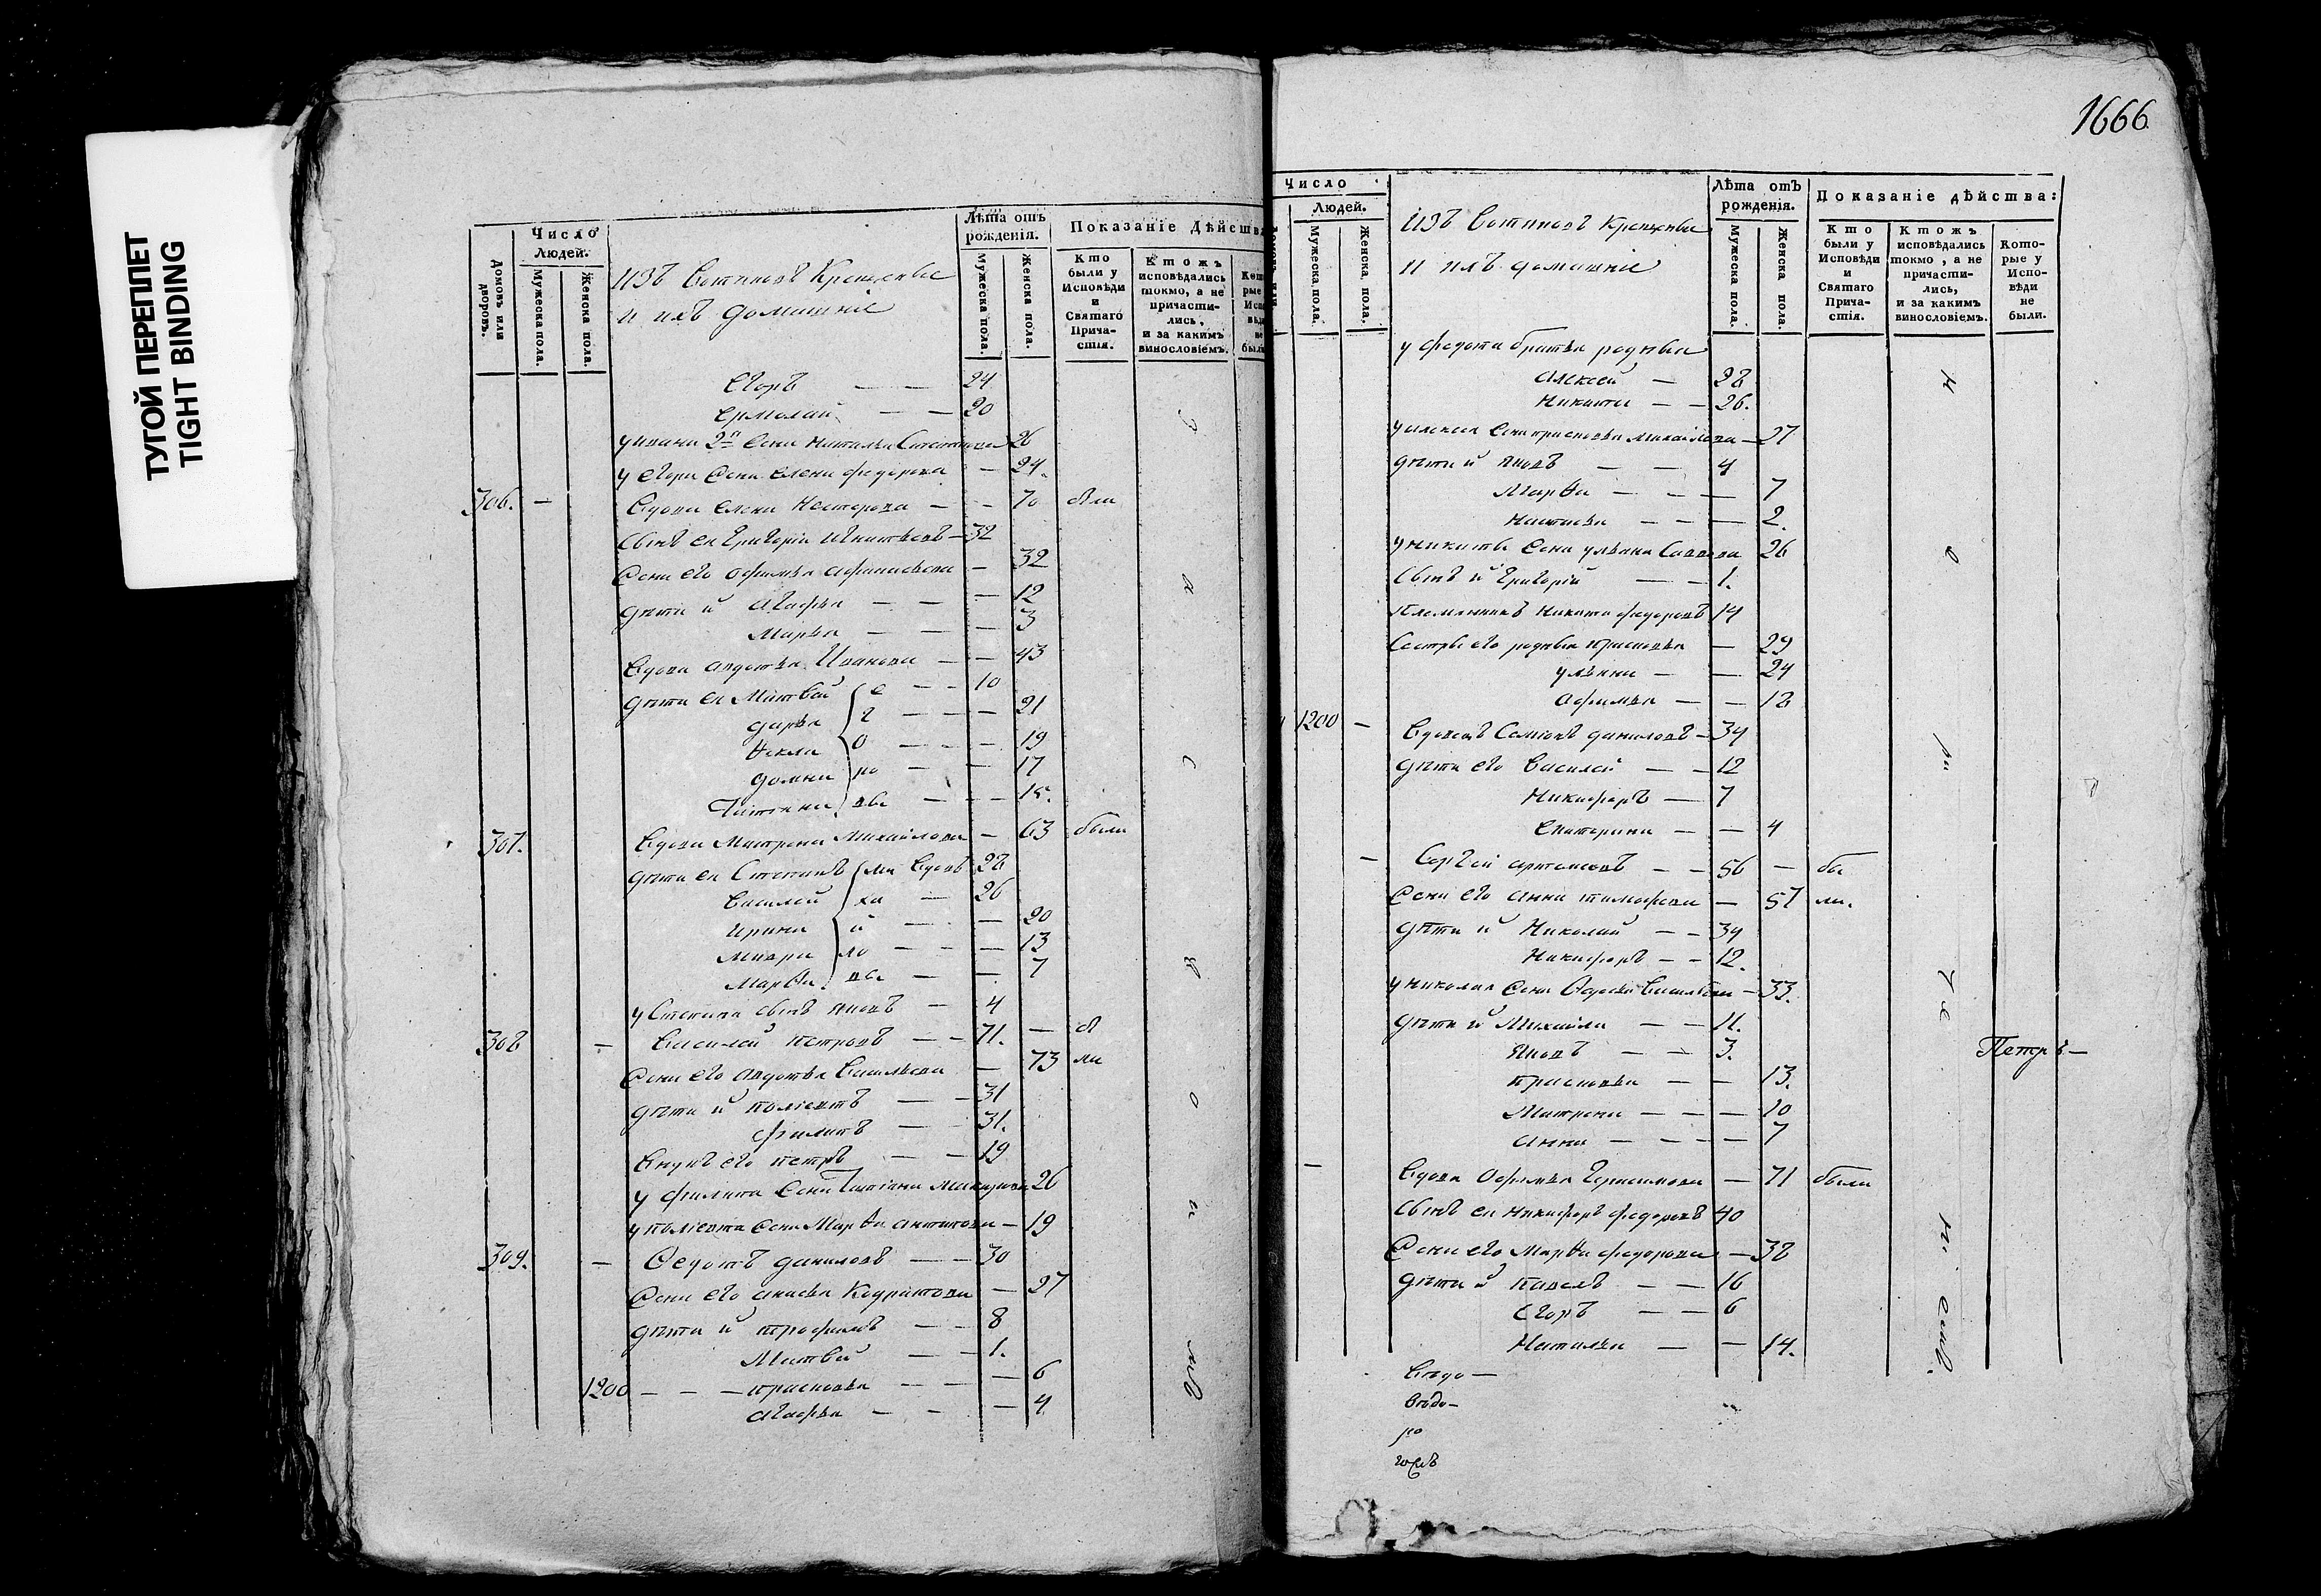 ТУГОЙ ПЕРЕПЛЕТ
TIGHT BINDING
Домовъ или дворовъ.
Число
Людей.
Мужеска пола.
Женска пола.
изъ Вотяковъ Крещеныя
и ихъ домашніе
Лѣта отъ рожденія.
Мужеска пола.
Женска пола.
Показаніе Дѣйства
Кто были у Исповѣди и Святаго Причастія.
Ктожъ исповѣдались токмо, а не причастились, и за какимъ винословіемъ.
Егоръ — — 24
Ермолай — — 20
у ивана 2й жена наталья Степанова 26
у егора жена елена федорова — 24.
306. — Вдова елена Нестерова — — 70 были
сынъ ея григорій игнатьевъ — 32
жена его офимья афанасьева — 32
дѣти и агафья — — — 12
Марья — — — 3
Вдова авдотья Иванова — — 43
дѣти ея Матвей е — — 10
дарья г — — — 21
Ѳекла о — — — 19
домна но — — 17
Татьяна вы — — — 15.
307. Вдова Матрена Михайлова — 63 были
дѣти ея Степанъ ми Вдовъ 28
Василей ха — 26
ирина й — — 20
мавра ло — — — 13
марѳа вы — — 7
у Степана сынъ яковъ — 4
308 — Василей петровъ — — 71. — бы
жена его авдотья Васильева — 73 ли
дѣти и полиектъ — — 31
филипъ — — 31.
Внукъ его петръ — — 19
у филипа жена Татіана макарова 26
у полиекта жена Марѳа антипова — 19
309. — Ѳедотъ даниловъ — — 30
жена его анисья Кодратова — 27
дѣти и трофимъ — — 8
Матвей — — 1.
1200 — — — прасковья — — — 6
агафья — — — 4
1666
Число
Людей.
Мужеска пола.
Женска пола.
изъ Вотяковъ Крещеныя
и ихъ домашніе
Лѣта отъ рожденія.
Мужеска пола.
Женска пола.
Показаніе дѣйства:
Кто были у Исповѣди и Святаго Причастія.
Ктожъ исповѣдались токмо, а не причастились, и за какимъ винословіемъ.
Которые у Исповѣди не были.
у федота братья родныя
алексей — 28
никита — — 26.
у алексея жена прасковья михайлова — 27
дѣти и яковъ — — 4
Марѳа — — — 7
настасья — — — 2.
у никиты жена ульяна Саввева 26
сынъ и григорій — — 1.
племянникъ никита федоровъ 14
Сестры его родныя прасковья — 29
ульяна — — 24
афимья — — 18
1200 — Вдовецъ Семіонъ даниловъ — 34
дѣти его Василей — — 12
Никифоръ — 7
Екатерина — — 4
— Сергей артемьевъ — — 56 — бы
жена его анна тимофеева — 57 ли.
дѣти и Николай — — 34
Никифоръ — — 12.
у николая жена Авдотья Васильева — 33.
дѣти и Михайла — — 11.
Яковъ — — 3.
прасковья — — 13.
Матрена — — — 10
анна — — — — 7
Петръ —
— Вдова Офимья Герасимова — 71 были
сынъ ея никифоръ федоровъ 40
жена его Марѳа федорова — 38
дѣти и павелъ — — 16
Егоръ — — 6
Наталья — — 14.